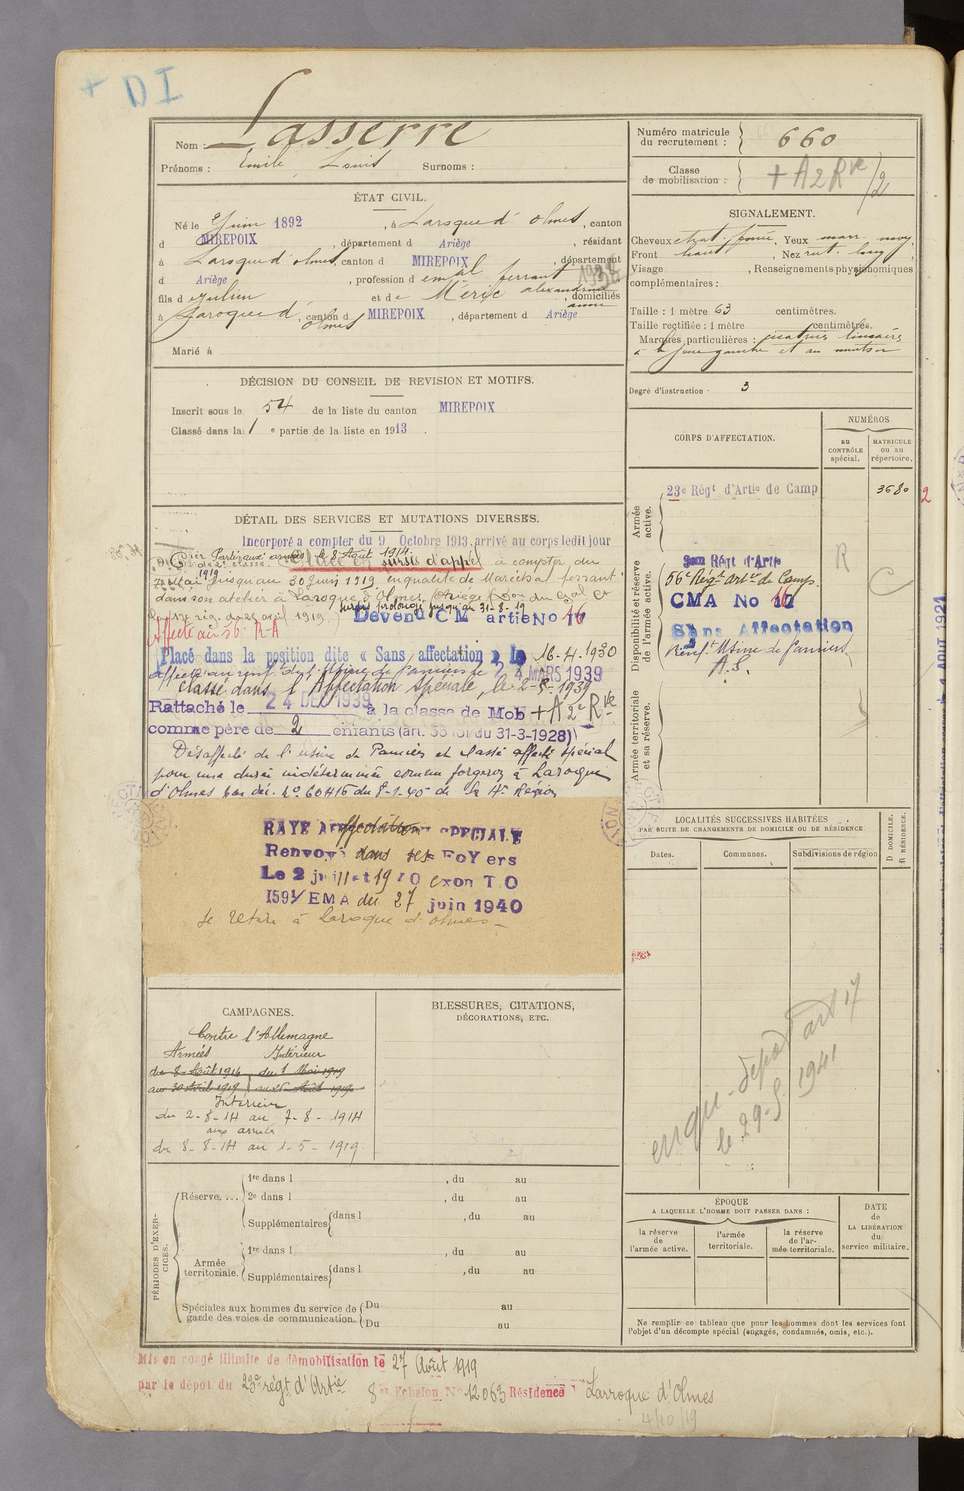 + DI
Nom : Lasserre
Prénoms : Emile Louis Surnoms :
ÉTAT CIVIL.
Né le Juin 1892, à Laroque d'olmes, canton
d MIREPOIX, département d Ariège, résidant
à Laroque d'olmes canton d MIREPOIX, département
d Ariège, profession d ferrant
fils d Julien et de Méric alexandrine anna, domiciliés
à Laroque d'olmes, canton d MIREPOIX, département d Ariège
Marié à
DÉCISION DU CONSEIL DE REVISION ET MOTIFS.
Inscrit sous le 54 de la liste du canton MIREPOIX
Classé dans la 1e partie de la liste en 1913.
DÉTAIL DES SERVICES ET MUTATIONS DIVERSES.
Incorporé a compter du 9 Octobre 1913, arrivé au corps ledit jour
Parti aux armées le 8 Août 1914.
sursis d'appel à compter du
1919 jusqu'au 30 Juin 1919 en qualité de Maréchal ferrant
dans son atelier à Laroque d'Olmes, Ariège
avril 1919.) sursis prolongé jusqu'au 31-8-19
Devenu CM artie No 16
Affecté au 56 R.A
Placé dans la position dite « Sans affectation » le 16-4-1930
24 MARS 1939
Classé dans l'Affectation spéciale, le 2-9-1939
Rattaché le 24 DEC 1939 à la classe de Mob + A 2e Rve
comme père de 2 enfants (art. 58 loi du 31-3-1928)
Désaffecté de l'usine de Pamiers et classé affecté spécial
pour une durée indéterminée comme forgeron à Laroque
d'Olmes par déc. No 60416 du 8-1-40 de la 17e Région
RAYE Affectation SPECIALE
Renvoyé dans ses FoYers
Le 2 juillet 1940 exon T.O
1591/EMA du 27 juin 1940
Se retire à Laroque d'olmes
CAMPAGNES.
Contre l'Allemagne
Armées Intérieur
du 8 Août 1914 du 1 Mai 1919
au 30 Avril 1919
Intérieur
du 2-8-14 au 7-8-1914
aux armées
du 8-8-14 au 1-5-1919
BLESSURES, CITATIONS,
DÉCORATIONS, ETC.
PÉRIODES D'EXERCICES.
Réserve.... 1re dans l , du au
2e dans l , du au
Supplémentaires dans l , du au
Armée territoriale. 1re dans l , du au
Supplémentaires dans l , du au
Spéciales aux hommes du service de garde des voies de communication. Du au
Du au
Mis en congé illimité de démobilisation le 27 Août 1919
par le dépôt du 23e régt d'Artie 8e Echelon No 12063 Résidence Larroque d'Olmes
4/10/19
Numéro matricule du recrutement : 660
Classe de mobilisation : + A2 Rve/2
SIGNALEMENT.
Cheveux , Yeux
Front haut, Nez
Visage , Renseignements physionomiques
complémentaires :
Taille : 1 mètre 63 centimètres.
Taille rectifiée : 1 mètre centimètres.
Marques particulières : cicatrices linéaires
à la joue gauche et au menton
Degré d'instruction - 3
CORPS D'AFFECTATION.
NUMÉROS
AU CONTRÔLE spécial.
MATRICULE ou au répertoire.
Armée active.
23e Régt d'Artie de Camp 3680 2
Disponibilité et réserve de l'armée active.
Régt d'Artie
56e Régt artie de Camp.
CMA No 16
Sans Affectation
Renft Usine de Pamiers
A.S.
R C
Armée territoriale et sa réserve.
LOCALITÉS SUCCESSIVES HABITÉES
PAR SUITE DE CHANGEMENTS DE DOMICILE OU DE RÉSIDENCE
Dates. Communes. Subdivisions de région
D DOMICILE.
R RÉSIDENCE.
dépôt art 17
le 29-5-1941
ÉPOQUE
A LAQUELLE L'HOMME DOIT PASSER DANS :
la réserve de l'armée active.
l'armée territoriale.
la réserve de l'armée territoriale.
DATE de LA LIBÉRATION du service militaire.
Ne remplir ce tableau que pour les hommes dont les services font
l'objet d'un décompte spécial (engagés, condamnés, omis, etc.).